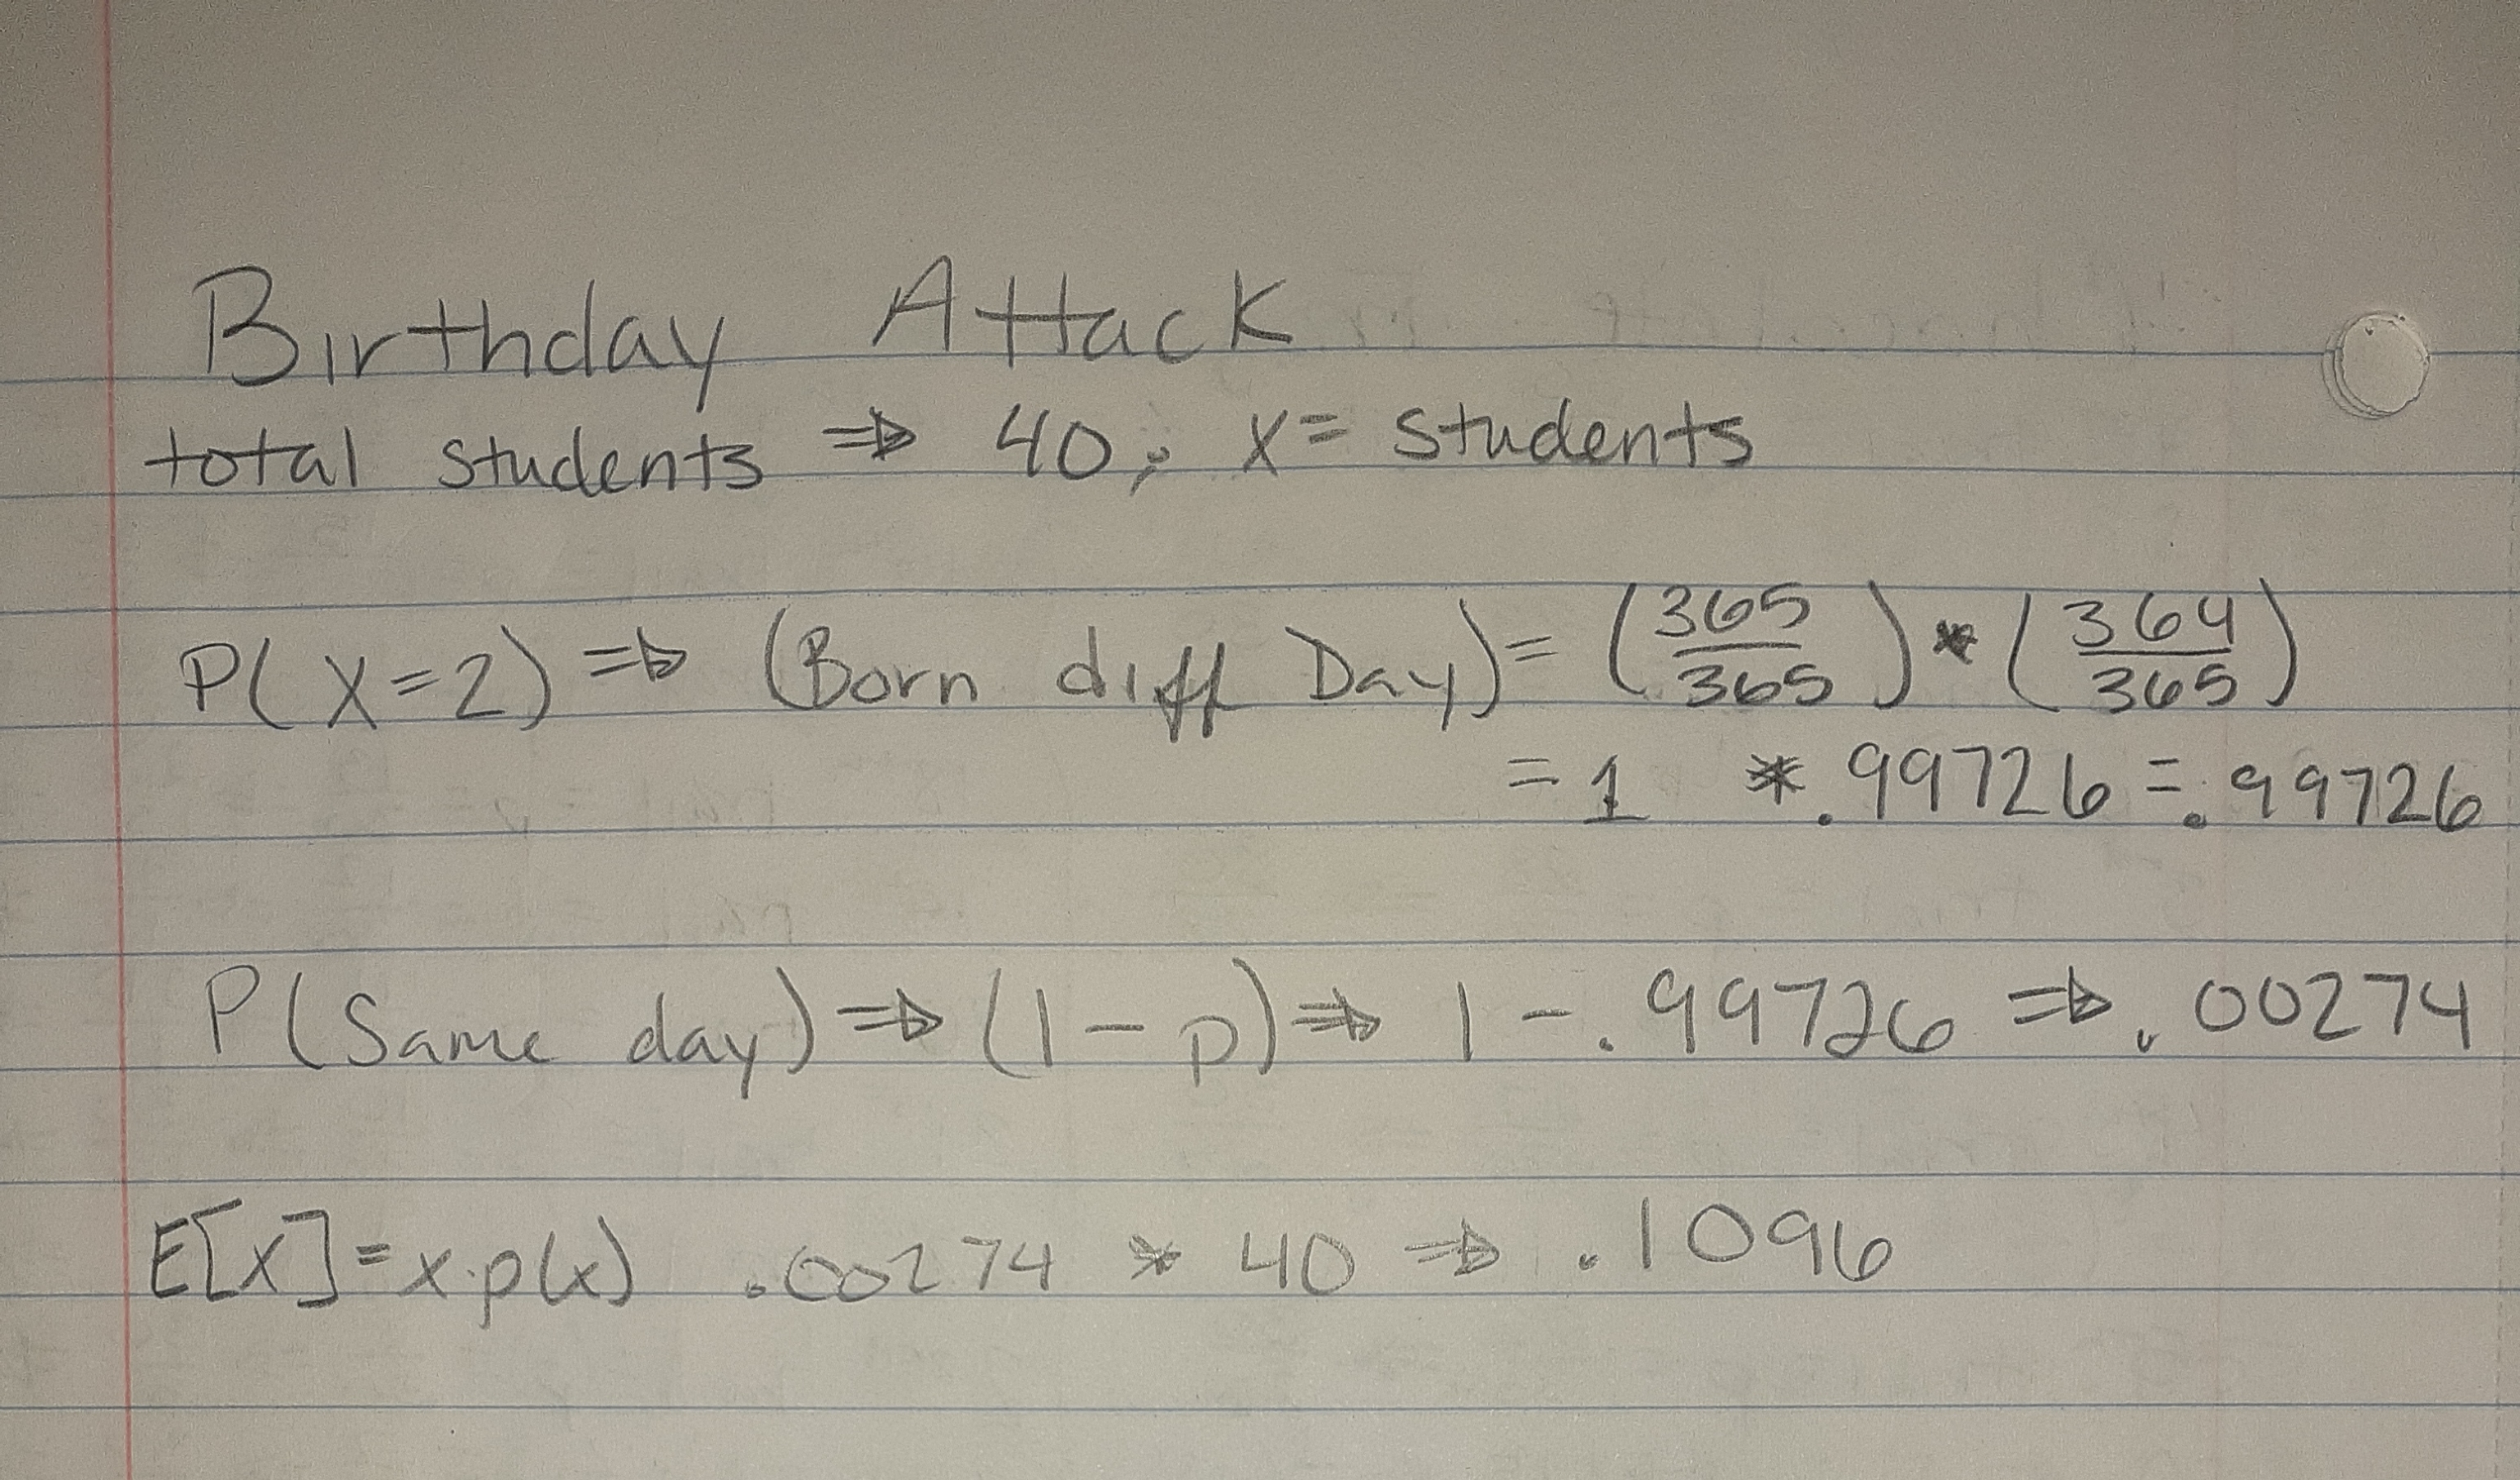 Birthday Attack
total students ⇒ 40; x = students
P(X=2) ⇒ (Born diff Day) = (365/365) * (364/365)
= 1 * .99726 = .99726
P(Same day) ⇒ (1 - p) ⇒ 1 - .99726 ⇒ .00274
E[X] = x·p(x) .00274 * 40 ⇒ .1096